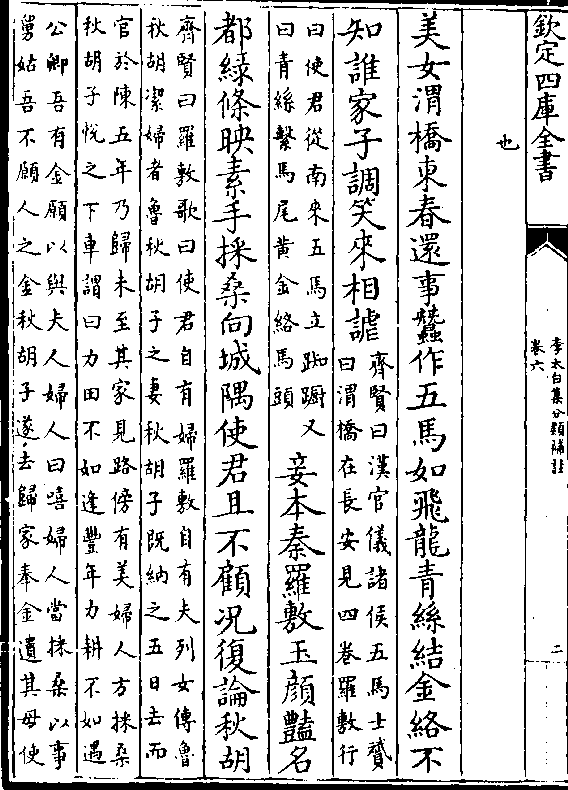 欽定四庫全書
李太白集分類補註
卷六
二
也
美女渭橋東春還事蠶作五馬如飛龍青絲結金絡不
知誰家子調笑來相謔
齊賢曰漢官儀諸侯五馬士贇
曰渭橋在長安見四卷羅敷行
曰使君從南來五馬立踟躕又
曰青絲繫馬尾黄金絡馬頭
妾本秦羅敷玉顔豔名
都緑條映素手採桑向城隅使君且不顧况復論秋胡
齊賢曰羅敷歌曰使君自有婦羅敷自有夫列女傳魯
秋胡潔婦者魯秋胡子之妻秋胡子既納之五日去而
官於陳五年乃歸未至其家見路傍有美婦人方採桑
秋胡子悦之下車謂曰力田不如逢豐年力耕不如遇
公卿吾有金願以與夫人婦人曰嘻婦人當採桑以事
舅姑吾不願人之金秋胡子遂去歸家奉金遺其母使